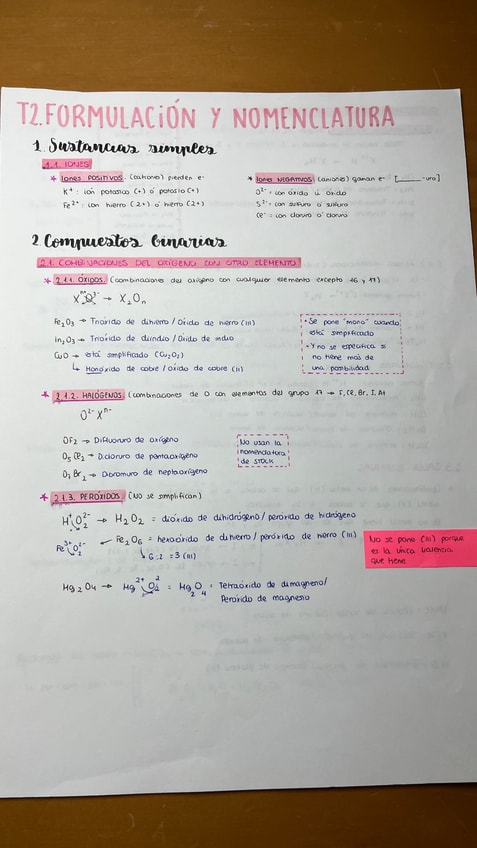 T2. FORMULACIÓN Y NOMENCLATURA
1. Sustancias simples
1.1. IONES
* Iones POSITIVOS (cationo) pierden e-
K+: ion potasico (+) ó potasio (+)
Fe2+: con hierro (2+) ó hierro (2+)
* Iones NEGATIVOS (aniones) ganan e- [_____-uro]
O2-: con óxido ú óxido
S2-: con sulfuro o sulfuro
Cl-: con cloruro o cloruro
2. Compuestos binarios
2.1. COMBINACIONES DEL OXÍGENO CON OTRO ELEMENTO
* 2.1.1. ÓXIDOS. (combinaciones del oxígeno con cualquier elemento excepto 16 y 17)
Xn+O2- → X2On
Fe2O3 → Trióxido de dihierro / Óxido de hierro (III)
In2O3 → Trióxido de diindio / Óxido de indio
CuO → está simplificado (Cu2O2)
↳ Monóxido de cobre / óxido de cobre (II)
• Se pone "mono" cuando
está simplificado
• Y no se especifica si
no tiene más de
una posibilidad
* 2.1.2. HALÓGENOS. (combinaciones de O con elementos del grupo 17 → F, Cl, Br, I, At
O2- Xn-
OF2 → Difluoruro de oxígeno
O5Cl2 → Dicloruro de pentaoxígeno
O7Br2 → Dibromuro de heptaoxígeno
No usan la
nomenclatura
de STOCK
* 2.1.3. PERÓXIDOS (No se simplifican)
H+O2 2- → H2O2 = dióxido de dihidrógeno / peróxido de hidrógeno
Fe3+O2 2- ← Fe2O6 = hexaóxido de dihierro / peróxido de hierro (III)
↳ 6:2 = 3 (III)
No se pone (II) porque
es la única valencia
que tiene
Mg2O4 → Mg2+ O2 2- = Mg2O4 = Tetraóxido de dimagneso/
Peróxido de magnesio